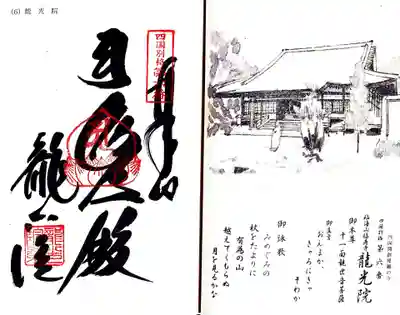 (6) 龍光院
奉拝
大悲殿
龍光院
四国別格第六番
四国別格 第六番
臨海山福寿寺 龍光院
御本尊
十一面観世音菩薩
御真言
おんまか、
きゃろにきゃ
そわか
御詠歌
みめぐみの
秋をたよりに
有為の山
越えてくもらぬ
月を見るかな